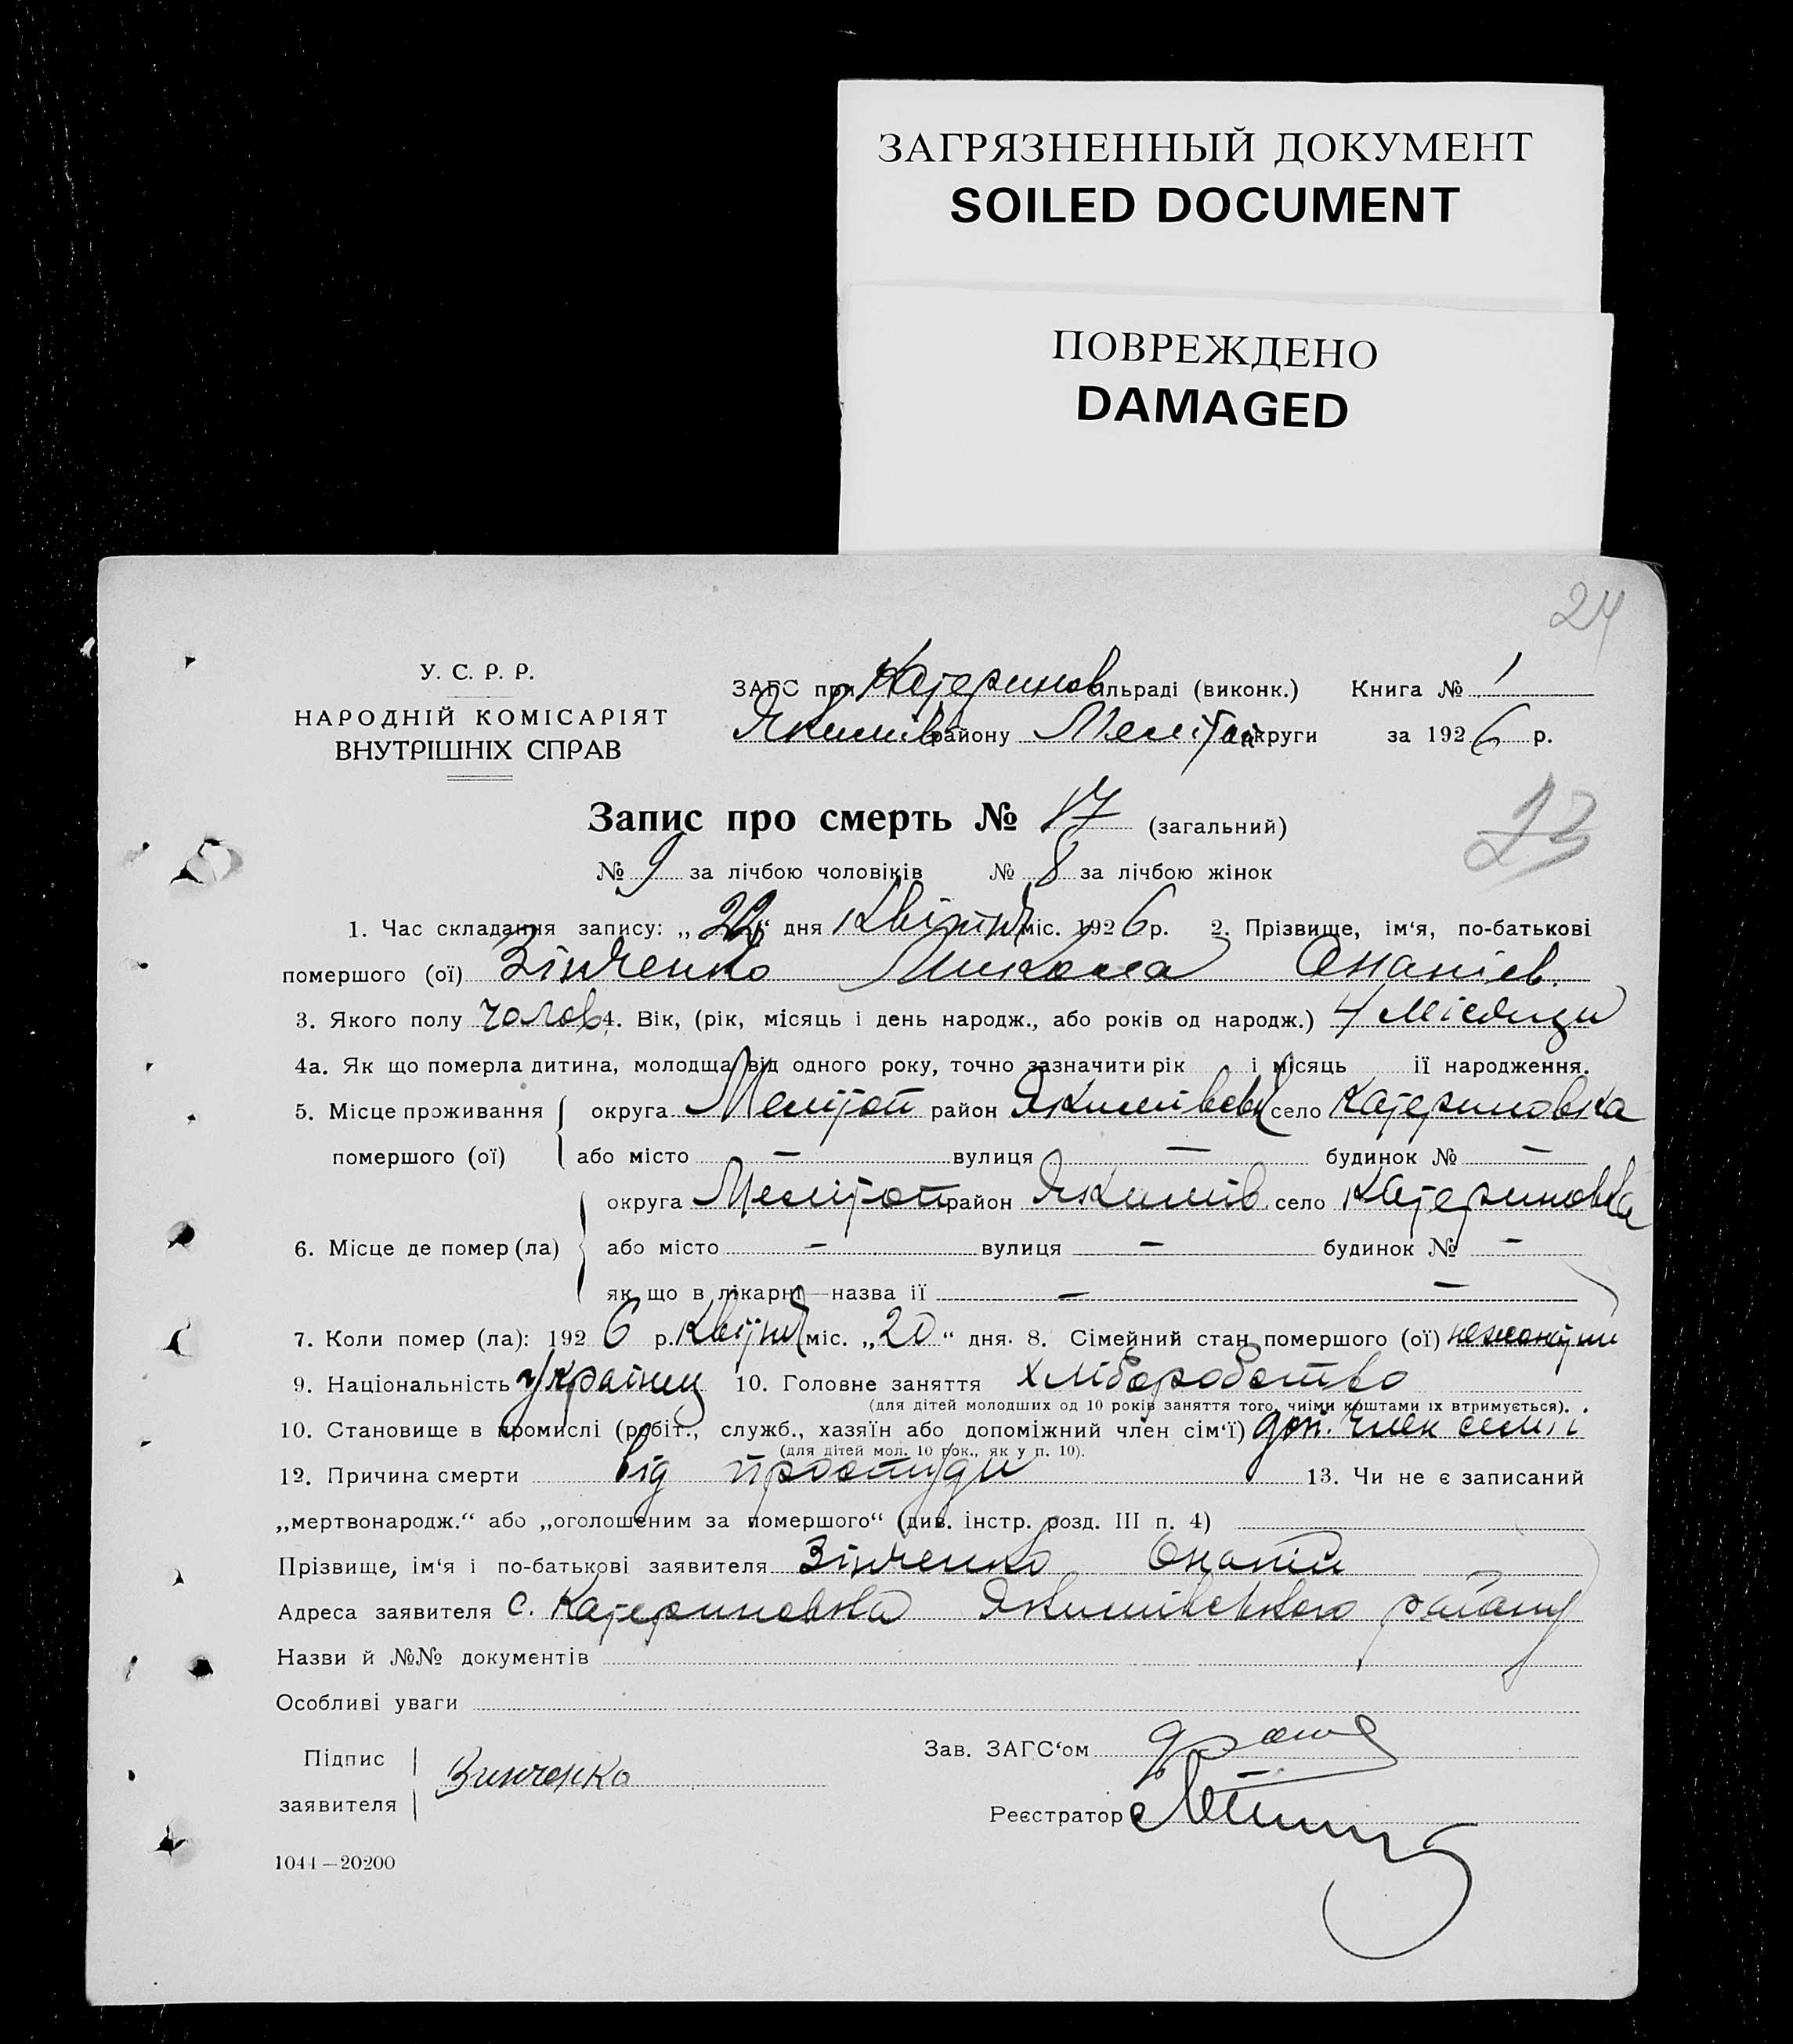 ЗАГРЯЗНЕННЫЙ ДОКУМЕНТ
SOILED DOCUMENT
ПОВРЕЖДЕНО
DAMAGED
24
У. С. Р. Р.
НАРОДНІЙ КОМІСАРІЯТ
ВНУТРІШНІХ СПРАВ
ЗАГС при Катеринов сільраді (виконк.) Книга № 1
Якимів району Мелітоп округи за 1926 р.
Запис про смерть № 17 (загальний)
23
№ 9 за лічбою чоловіків № 8 за лічбою жінок
1. Час складання запису: „22“ дня Квітня міс. 1926 р. 2. Прізвище, ім‘я, по-батькові
помершого (ої) Зінченко Микола Онаніев.
3. Якого полу чолов 4. Вік, (рік, місяць і день народж., або років од народж.) 4 місяци
4а. Як що померла дитина, молодша від одного року, точно зазначити рік і місяць її народження.
5. Місце проживання помершого (ої) округа Мелітоп район Якимівськ село Катериновка
або місто — вулиця — будинок № —
6. Місце де помер (ла) округа Мелітоп район Якимів. село Катериновка
або місто — вулиця — будинок № —
як що в лікарні—назва її — —
7. Коли помер (ла): 1926 р. Квітня міс. „20“ дня. 8. Сімейний стан помершого (ої)
9. Національність Українец 10. Головне заняття хліборобство
(для дітей молодших од 10 років заняття того, чиіми коштами іх втримується).
10. Становище в промислі (робіт., служб., хазяїн або допоміжний член сім‘ї) доп. член семіі
(для дітей мол. 10 рок., як у п. 10).
12. Причина смерти від простуди 13. Чи не є записаний
„мертвонародж.“ або „оголошеним за помершого“ (див. інстр. розд. III п. 4)
Прізвище, ім‘я і по-батькові заявителя Зінченко Онаній
Адреса заявителя с. Катериновка Якимівського району
Назви й №№ документів
Особливі уваги
Підпис заявителя Зинченко
Зав. ЗАГС‘ом
Реєстратор
1044—20200